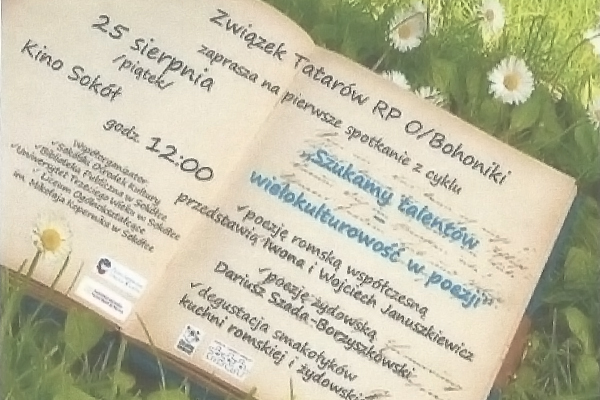 25 sierpnia
/piątek/
Kino Sokół
godz. 12:00
Współorganizator
✓Sokólski Ośrodek Kultury
✓Biblioteka Publiczna w Sokółce
✓Uniwersytet Trzeciego Wieku w Sokółce
✓Liceum Ogólnokształcące
im. Mikołaja Kopernika w Sokółce
Związek Tatarów RP O/Bohoniki
zaprasza na pierwsze spotkanie z cyklu
„Szukamy talentów
–
wielokulturowość w poezji”
✓poezję romską współczesną
przedstawią Iwona i Wojciech Januszkiewicz
✓poezję żydowską
Dariusz Szada-Borzyszkowski
✓degustacja smakołyków
kuchni romskiej i żydowskiej